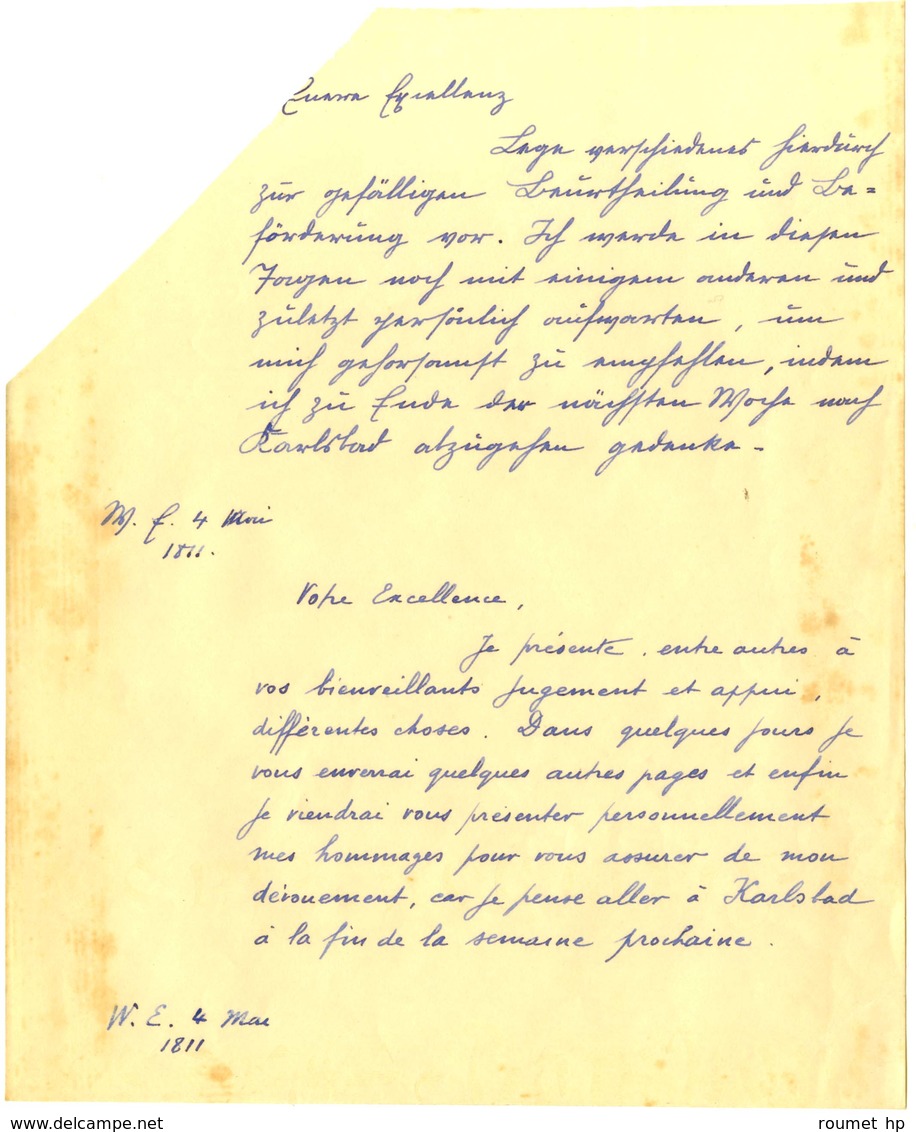 Euere Excellenz
Lege verschiedenes hierdurch
zur gefälligen Beurtheilung und Be=
förderung vor. Ich werde in diesen
Tagen noch mit einigem anderen und
zuletzt persönlich aufwarten, um
mich gehorsamst zu empfehlen, indem
ich zu Ende der nächsten Woche nach
Karlsbad abzugehen gedenke.-
W. E. 4 Mai
1811.
Votre Excellence,
Je présente. entre autres à
vos bienveillants jugement et appui,
différentes choses. Dans quelques jours je
vous enverrai quelques autres pages et enfin
je viendrai vous présenter personnellement
mes hommages pour vous assurer de mon
dévouement, car je pense aller à Karlsbad
à la fin de la semaine prochaine.
W. E. 4 Mai
1811
www.delcampe.net
roumet hp